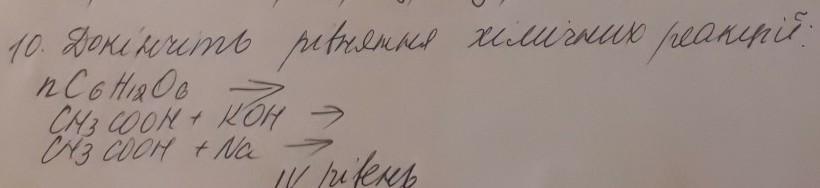 10. Докінчить рівняння хімічних реакцій:
nC6H12O6 →
CH3COOH + KOH →
CH3COOH + Na →
IV рівень